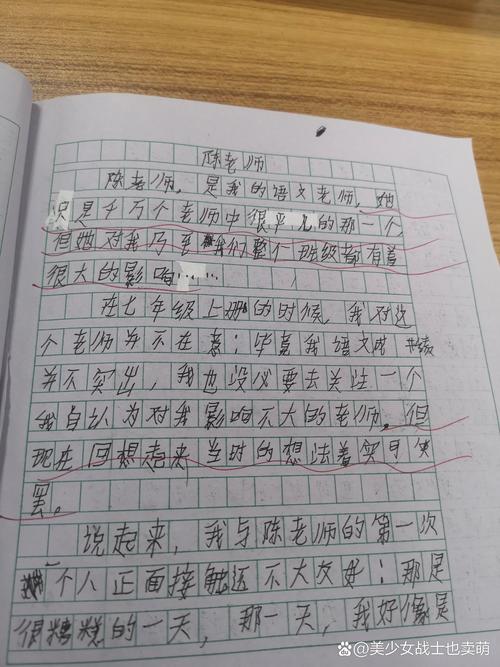 陈老师
陈老师，是我的语文老师，她
只是千万个老师中很平凡的那一个
但她对我乃至我们整个班级都有着
很大的影响……
在七年级上册的时候，我对这
个老师并不在意：毕竟我语文成绩
并不突出，我也没必要去关注一个
我自认为对我影响不大的老师。但
现在回想起来当时的想法着实可笑
罢。
说起来，我与陈老师的第一次
个人正面接触还不大友好：那是
很糟糕的一天，那一天，我好像是
@美少女战士也卖萌